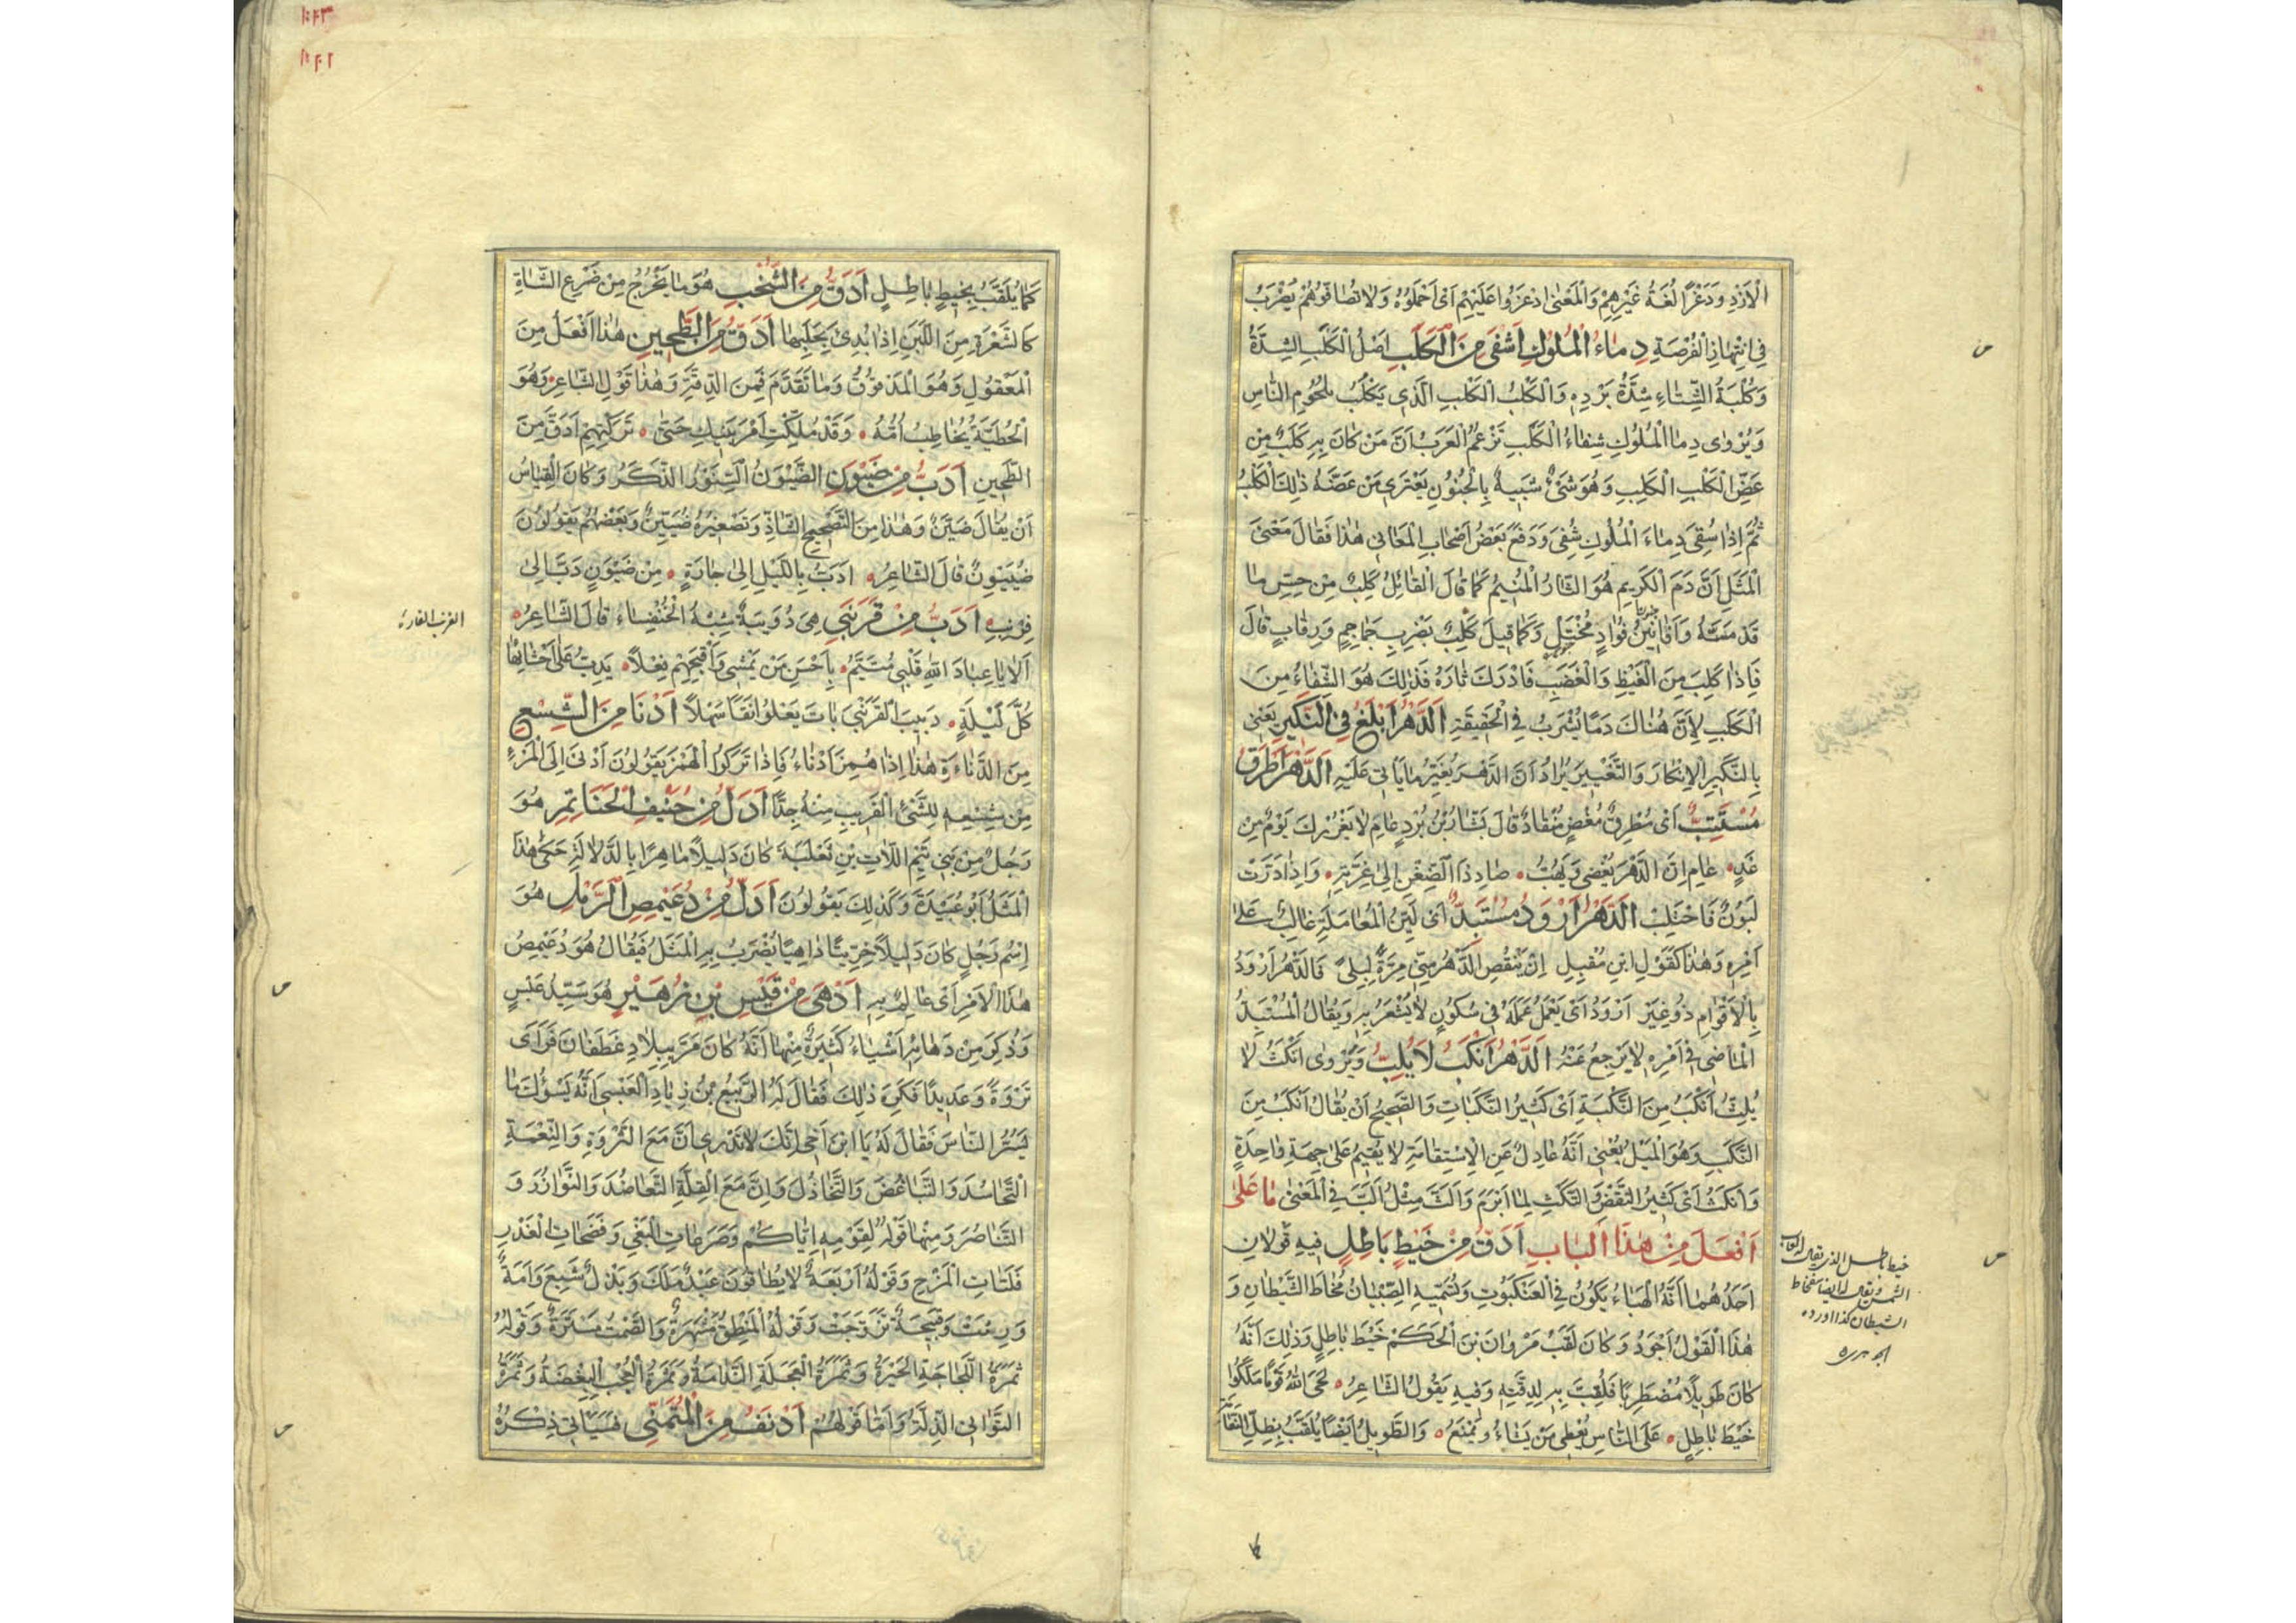 الْاَزْدِ وَدَغْرًا لُغَةُ غَيْرِهِمْ وَالْمَعْنٰى ادْغَرُوا عَلَيْهِمْ اَىْ اَحْمِلُوهُ وَلَا تُصَافُّوهُمْ يُضْرَبُ
فِى انْتِهَازِ الْفُرْصَةِ دِمَاءُ الْمُلُوكِ اَشْفٰى مِنَ الْكَلَبِ اَصْلُ الْكَلَبِ الشِّدَّةُ
وَكُلْبَةُ الشِّتَاءِ شِدَّةُ بَرْدِهِ وَالْكَلْبُ الْكَلِبُ الَّذِى يَكْلَبُ بِلُحُومِ النَّاسِ
وَيُرْوٰى دِمَا الْمُلُوكِ شِفَاءُ الْكَلَبِ تَزْعُمُ الْعَرَبُ اَنَّ مَنْ كَانَ بِهِ كَلَبٌ مِنْ
عَضِّ الْكَلْبِ الْكَلِبِ وَهُوَ شَىْءٌ شَبِيهٌ بِالْجُنُونِ يَعْتَرِى مَنْ عَضَّهُ ذٰلِكَ الْكَلْبُ
ثُمَّ اِذَا سُقِىَ دِمَاءَ الْمُلُوكِ شُفِىَ وَدَفَعَ بَعْضُ اَصْحَابِ الْمَعَانِى هٰذَا فَقَالَ مَعْنَى
الْمَثَلِ اَنَّ دَمَ الْكَرِيمِ هُوَ الثَّارُ الْمُنِيمُ كَمَا قَالَ الْقَائِلُ كَلِبٌ مِنْ حِسِّ مَا
قَدْ مَسَّهُ وَاَفَانِينُ فُؤَادٍ مُخْتَبَلِ وَكَمَا قِيلَ كَلِبٌ بِضَرْبِ جَمَاجِمٍ وَرِقَابٍ قَالَ
فَاِذَا كَلِبَ مِنَ الْغَيْظِ وَالْغَضَبِ فَاَدْرَكَ ثَارَهُ فَذٰلِكَ هُوَ الشِّفَاءُ مِنَ
الْكَلَبِ لِاَنَّ هُنَاكَ دَمًا يُشْرَبُ فِى الْحَقِيقَةِ اَلدَّهْرُ اَبْلَغُ فِى النَّكِيرِ يَعْنِى
بِالنَّكِيرِ الْاِنْكَارَ وَالتَّغْيِيرَ يُرَادُ اَنَّ الدَّهْرَ يُغَيِّرُ مَا يَاْتِى عَلَيْهِ اَلدَّهْرُ اَطْرَقُ
مُسْتَتِبٌّ اَىْ مُطْرِقٌ مُغْضٍ مُنْقَادٌ قَالَ بَشَّارُ بْنُ بُرْدٍ عَامِ لَا يَغْرُرْكَ يَوْمٌ مِنْ
غَدٍ عَامِ اِنَّ الدَّهْرَ يُغْضِى وَيَهُبّ صَادِ ذَا الضِّغْنِ اِلٰى غِرَّتِهِ وَاِذَا دَرَّتْ
لَبُونٌ فَاحْتَلِبْ اَلدَّهْرُ اَرْوَدُ مُسْتَبِدٌّ اَىْ لَيِّنُ الْمُعَامَلَةِ غَالِبٌ عَلٰى
اَمْرِهِ وَهٰذَا كَقَوْلِ ابْنِ مُقْبِلٍ اِنْ يَنْقُصِ الدَّهْرُ مِنِّى مِرَّةً لِبِلًى فَالدَّهْرُ اَرْوَدُ
بِالْاَقْوَامِ ذُو غِيَرٍ اَرْوَدُ اَىْ يَعْمَلُ عَمَلَهُ فِى سُكُونٍ لَا يُشْعَرُ بِهِ وَيُقَالُ الْمُسْتَبِدُّ
الْمَاضِى فِى اَمْرِهِ لَا يَرْجِعُ عَنْهُ اَلدَّهْرُ اَنْكَبُ لَا يُلِبُّ وَيُرْوٰى اَنْكَثُ لَا
يُلِثُّ اَنْكَبُ مِنَ النَّكْبَةِ اَىْ كَثِيرُ النَّكَبَاتِ وَالصَّحِيحُ اَنْ يُقَالَ اَنْكَبُ مِنَ
النَّكَبِ وَهُوَ الْمَيْلُ يَعْنِى اَنَّهُ عَادِلٌ عَنِ الْاِسْتِقَامَةِ لَا يُقِيمُ عَلٰى جِهَةٍ وَاحِدَةٍ
وَاَنْكَثُ اَىْ كَثِيرُ النَّقْضِ وَالنَّكْثِ لِمَا اَبْرَمَ وَاَلَثَّ مِثْلُ اَلَبَّ فِى الْمَعْنٰى مَا عَلٰى
اَفْعَلَ مِنْ هٰذَا الْبَابِ اَدَقُّ مِنْ خَيْطِ بَاطِلٍ فِيهِ قَوْلَانِ
اَحَدُهُمَا اَنَّهُ الْهَبَاءُ يَكُونُ فِى الْعَنْكَبُوتِ وَتُسَمِّيهِ الصِّبْيَانُ مُخَاطَ الشَّيْطَانِ وَ
هٰذَا الْقَوْلُ اَجْوَدُ وَكَانَ لَقَبُ مَرْوَانَ بْنِ الْحَكَمِ خَيْطَ بَاطِلٍ وَذٰلِكَ اَنَّهُ
كَانَ طَوِيلًا مُضْطَرِبًا فَلُقِّبَ بِهِ لِدِقَّتِهِ وَفِيهِ يَقُولُ الشَّاعِرُ لَحَى اللّٰهُ قَوْمًا مَلَّكُوا
خَيْطَ بَاطِلٍ عَلَى النَّاسِ يُعْطِى مَنْ يَشَاءُ وَيَمْنَعُ وَالطَّوِيلُ اَيْضًا يُلَقَّبُ بِظِلِّ النَّعَامَةِ
خيط باطل الذى يقال له لعاب
الشمس ويقال له ايضا مخاط
الشيطان كذا اورده
الجوهرى
كَمَا يُلَقَّبُ بِخَيْطِ بَاطِلٍ اَدَقُّ مِنَ الشُّخْبِ هُوَ مَا يَخْرُجُ مِنْ ضَرْعِ الشَّاةِ
كَالشَّعْرَةِ مِنَ اللَّبَنِ اِذَا بُدِئَ بِحَلْبِهَا اَدَقُّ مِنَ الطَّحِينِ هٰذَا اَفْعَلُ مِنَ
الْمَفْعُولِ وَهُوَ الْمَدْقُوقُ وَمَا تَقَدَّمَ فَمِنَ الدِّقَّةِ وَهٰذَا قَوْلُ الشَّاعِرِ وَهُوَ
الْحُطَيْئَةُ يُخَاطِبُ اُمَّهُ وَقَدْ مُلِّكْتِ اَمْرَ بَنِيكِ حَتّٰى تَرَكْتِهِمْ اَدَقَّ مِنَ
الطَّحِينِ اَدَبُّ مِنْ ضَيْوَنٍ الضَّيْوَنُ السِّنَّوْرُ الذَّكَرُ وَكَانَ الْقِيَاسُ
اَنْ يُقَالَ ضَيَّنٌ وَهٰذَا مِنَ التَّصْحِيحِ الشَّاذِّ وَتَصْغِيرُهُ ضُيَيِّنٌ وَبَعْضُهُمْ يَقُولُونَ
ضُيَيْوِنٌ قَالَ الشَّاعِرُ اَدَبُّ بِاللَّيْلِ اِلٰى جَارَةٍ مِنْ ضَيْوَنٍ دَبَّ اِلٰى
فِرْنِبِ اَدَبُّ مِنْ قَرَنْبٰى هِىَ دُوَيْبَةٌ شِبْهُ الْخُنْفِسَاءِ قَالَ الشَّاعِرُ
الفرنب الفارة
اَلَا يَا عِبَادَ اللّٰهِ قَلْبِى مُتَيَّمٌ بِاَحْسَنِ مَنْ يَمْشِى وَاَقْبَحِهِمْ بَعْلًا يَدِبُّ عَلٰى اَحْشَائِهَا
كُلَّ لَيْلَةٍ دَبِيبَ الْقَرَنْبٰى بَاتَ يَعْلُو نَقًا سَهْلًا اَدْنَا مِنَ الشِّسْعِ
مِنَ الدَّنَاءَةِ هٰذَا اِذَا هُمِزَ اَدْنَاءُ فَاِذَا تَرَكُوا الْهَمْزَ يَقُولُونَ اَدْنٰى اِلَى الْمَرْءِ
مِنْ شِسْعِهِ لِلشَّىْءِ الْقَرِيبِ مِنْهُ جِدًّا اَدَلُّ مِنْ حُنَيْفِ الْحَنَاتِمِ هُوَ
رَجُلٌ مِنْ بَنِى تَيْمِ اللَّاتِ بْنِ ثَعْلَبَةَ كَانَ دَلِيلًا مَاهِرًا بِالدَّلَالَةِ حَكٰى هٰذَا
الْمَثَلَ اَبُو عُبَيْدَةَ وَكَذٰلِكَ يَقُولُونَ اَدَلُّ مِنْ دُعَيْمِيصِ الرَّمْلِ هُوَ
اِسْمُ رَجُلٍ كَانَ دَلِيلًا خِرِّيتًا دَاهِيًا يُضْرَبُ بِهِ الْمَثَلُ فَيُقَالُ هُوَ دُعَيْمِصُ
هٰذَا الْاَمْرِ اَىْ عَالِمٌ بِهِ اَدْهٰى مِنْ قَيْسِ بْنِ زُهَيْرٍ هُوَ سَيِّدُ عَبْسٍ
وَذُكِرَ مِنْ دَهَائِهِ اَشْيَاءُ كَثِيرَةٌ مِنْهَا اَنَّهُ كَانَ مَرَّ بِبِلَادِ غَطَفَانَ فَرَاٰى
ثَرْوَةً وَعَدِيدًا فَكَرِهَ ذٰلِكَ فَقَالَ لَهُ الرَّبِيعُ بْنُ زِيَادٍ الْعَبْسِىُّ اَنَّهُ يَسُوْءُكَ مَا
يَسُرُّ النَّاسَ فَقَالَ لَهُ يَا ابْنَ اَخِى اِنَّكَ لَا تَدْرِى اَنَّ مَعَ الثَّرْوَةِ وَالنِّعْمَةِ
التَّحَاسُدَ وَالتَّبَاغُضَ وَالتَّخَاذُلَ وَاِنَّ مَعَ الْقِلَّةِ التَّعَاضُدَ وَالتَّوَازُرَ وَ
التَّنَاصُرَ وَمِنْهَا قَوْلُهُ لِقَوْمِهِ اِيَّاكُمْ وَصَرَعَاتِ الْبَغْىِ وَفَضَحَاتِ الْغَدْرِ
فَلَتَاتِ الْمَزْحِ وَقَوْلُهُ اَرْبَعَةٌ لَا يُطَاقُونَ عَبْدٌ مَلَكَ وَنَذْلٌ شَبِعَ وَاَمَةٌ
وَرِثَتْ وَقَبِيحَةٌ تَزَوَّجَتْ وَقَوْلُهُ الْمَنْطِقُ مَشْهَرَةٌ وَالصَّمْتُ مَسْتَرَةٌ وَقَوْلُهُ
ثَمَرَةُ اللَّجَاجَةِ الْحَيْرَةُ وَثَمَرَةُ الْعَجَلَةِ النَّدَامَةُ وَثَمَرَةُ الْعُجْبِ الْبِغْضَةُ وَثَمَرَةُ
التَّوَانِى الذِّلَّةُ وَاَمَّا قَوْلُهُمْ اَدْنَفُ مِنَ الْمُتَمَنِّى فَسَيَاْتِى ذِكْرُهُ